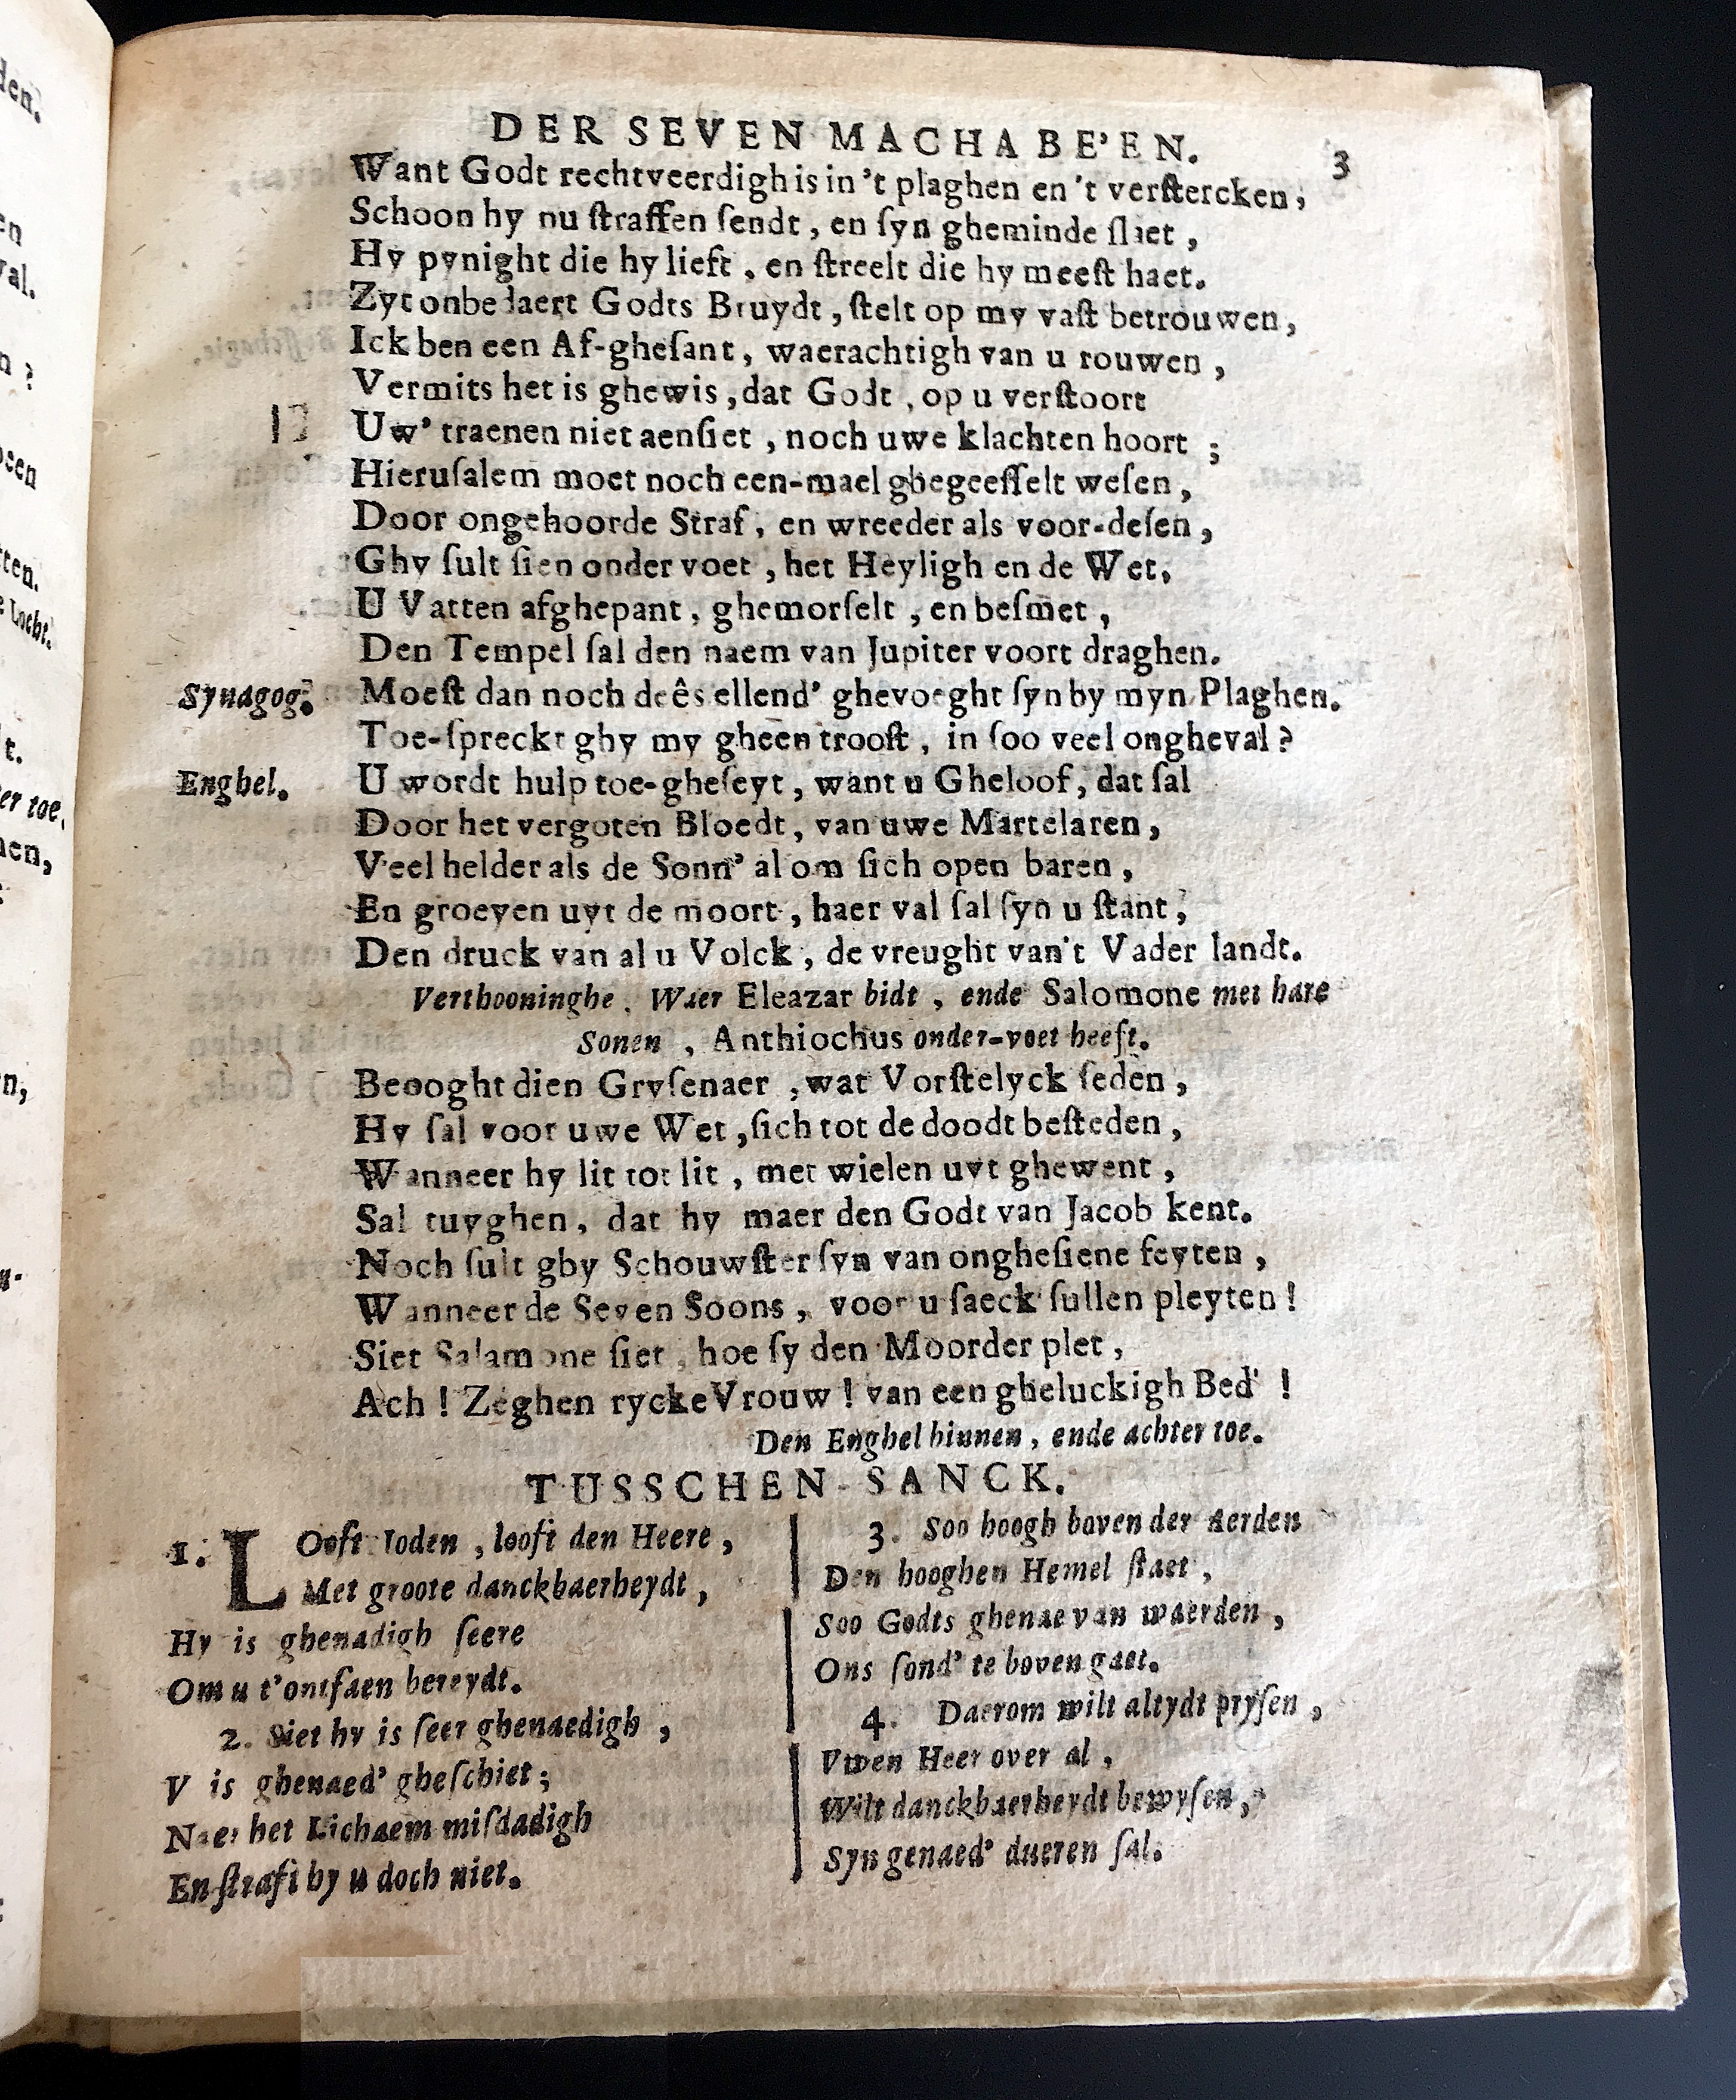 DER SEVEN MACHABE'EN. 3
Want Godt rechtveerdigh is in 't plaghen en 't verstercken;
Schoon hy nu straffen sendt, en syn gheminde slaet,
Hy pynight die hy lieft, en streelt die hy meest haet.
Zyt onbedaert Godts Bruydt, stelt op my vast betrouwen,
Ick ben een Af-ghesant, waerachtigh van u rouwen,
Vermits het is ghewis, dat Godt, op u verstoort
Uw' traenen niet aensiet, noch uwe klachten hoort;
Hierusalem moet noch een-mael ghegeesselt wesen,
Door ongehoorde Straf, en wreeder als voor-desen,
Ghy sult sien onder voet, het Heyligh en de Wet,
U Vatten afghepant, ghemorselt, en besmet,
Den Tempel sal den naem van Jupiter voort draghen.
Synagog. Moest dan noch deês ellend' ghevoeght syn by myn Plaghen.
Toe-spreckt ghy my gheen troost, in soo veel ongheval?
Enghel. U wordt hulp toe-gheseyt, want u Gheloof, dat sal
Door het vergoten Bloedt, van uwe Martelaren,
Veel helder als de Sonn' al om sich open baren,
En groeyen uyt de moort, haer val sal syn u stant,
Den druck van al u Volck, de vreught van't Vader landt.
Verthooninghe, Waer Eleazar bidt, ende Salomone met hare
Sonen, Anthiochus onder-voet heeft.
Beooght dien Grysenaer, wat Vorstelyck seden,
Hy sal voor uwe Wet, sich tot de doodt besteden,
Wanneer hy lit tot lit, met wielen uyt ghewent,
Sal tuyghen, dat hy maer den Godt van Jacob kent.
Noch sult ghy Schouwster syn van onghesiene feyten,
Wanneer de Seven Soons, voor u saeck sullen pleyten!
Siet Salamone siet, hoe sy den Moorder plet,
Ach! Zeghen rycke Vrouw! van een gheluckigh Bed'!
Den Enghel binnen, ende achter toe.
TUSSCHEN-SANCK.
1. LOoft Ioden, looft den Heere,
Met groote danckbaerheydt,
Hy is ghenadigh seere
Om u t'ontfaen bereydt.
2. Siet hy is seer ghenaedigh,
V is ghenaed' gheschiet;
Naer het Lichaem misdadigh
En straft hy u doch niet.
3. Soo hoogh boven der aerden
Den hooghen Hemel staet,
Soo Godts ghenae van waerden,
Ons sond' te boven gaet.
4. Daerom wilt altydt prysen,
Vwen Heer over al,
Wilt danckbaerheydt bewysen,
Syn genaed' dueren sal.